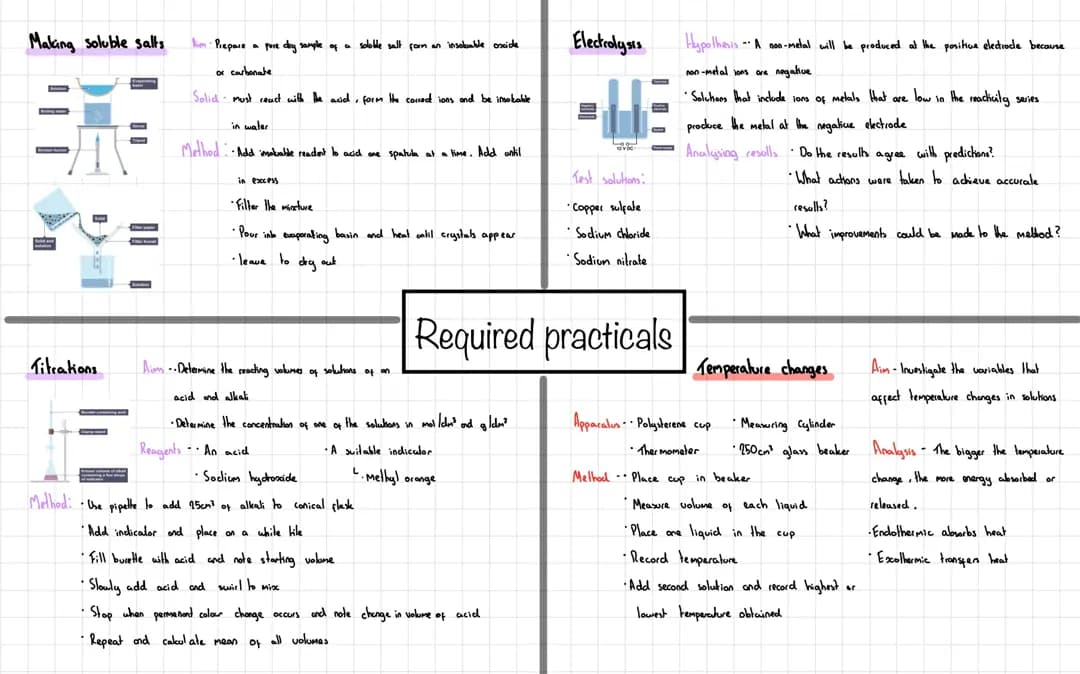 Making soluble salts
Aim - Prepare a pure dry sample of a soluble salt from an insoluble oxide
or carbonate
Solid - must react with the acid, form the correct ions and be insoluble
in water
Method: · Add insoluble reactant to acid one spatula at a time. Add until
in excess
· Filter the mixture
· Pour into evaporating basin and heat until crystals appear
· leave to dry out
Solution
Evaporating basin
Boiling water
Gauze
Tripod
Bunsen burner
Solid
Filter paper
Solid and solution
Filter funnel
Solution
Electrolysis
Hypothesis - · A non-metal will be produced at the positive electrode because
non-metal ions are negative
· Solutions that include ions of metals that are low in the reactivity series
produce the metal at the negative electrode
Analysing results · Do the results agree with predictions?
· What actions were taken to achieve accurate
results?
· What improvements could be made to the method?
12 V DC
Test solutions:
· Copper sulfate
· Sodium chloride
· Sodium nitrate
Required practicals
Titrations
Aim - · Determine the reacting volumes of solutions of an
acid and alkali
· Determine the concentration of one of the solutions in mol/dm³ and g/dm³
Reagents - · An acid
· A suitable indicator
· Sodium hydroxide
· Methyl orange
Method: · Use pipette to add 25cm³ of alkali to conical flask
· Add indicator and place on a white tile
· Fill burette with acid and note starting volume
· Slowly add acid and swirl to mix
· Stop when permanent colour change occurs and note change in volume of acid
· Repeat and calculate mean of all volumes
Temperature changes
Aim - Investigate the variables that
affect temperature changes in solutions
Apparatus - · Polysterene cup
· Measuring Cylinder
· Thermometer
· 250cm³ glass beaker
Method - · Place cup in beaker
· Measure volume of each liquid
· Place one liquid in the cup
· Record temperature
· Add second solution and record highest or
lowest temperature obtained
Analysis - The bigger the temperature
change, the more energy absorbed or
released.
· Endothermic absorbs heat
· Exothermic transfers heat